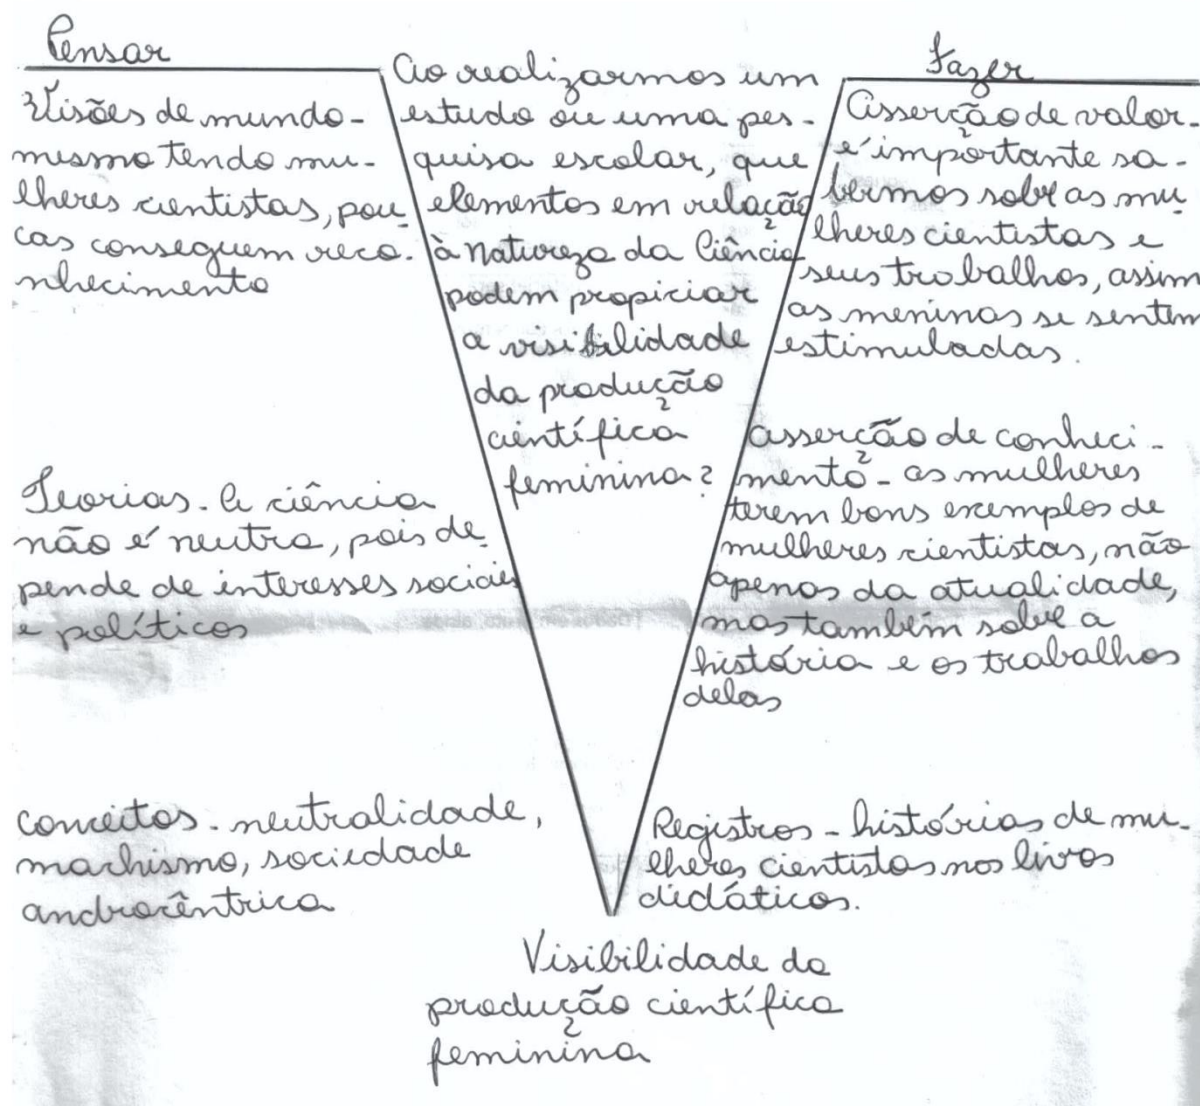 Pensar
Visões de mundo-
mesmo tendo mu-
lheres cientistas, pou-
cas conseguem reco-
nhecimento
Teorias - A ciência
não é neutra, pois de-
pende de interesses sociais
e políticos
conceitos - neutralidade,
machismo, sociedade
androcêntrica
Ao realizarmos um
estudo ou uma pes-
quisa escolar, que
elementos em relação
à Natureza da Ciência
podem propiciar
a visibilidade
da produção
científica
feminina?
Fazer
Asserção de valor-
é importante sa-
bermos sobre as mu-
lheres cientistas e
seus trabalhos, assim
as meninas se sentem
estimuladas.
asserção de conheci-
mento - as mulheres
terem bons exemplos de
mulheres cientistas, não
apenas da atualidade,
mas também sobre a
história e os trabalhos
delas
Registros - histórias de mu-
lheres cientistas nos livros
didáticos.
Visibilidade da
produção científica
feminina